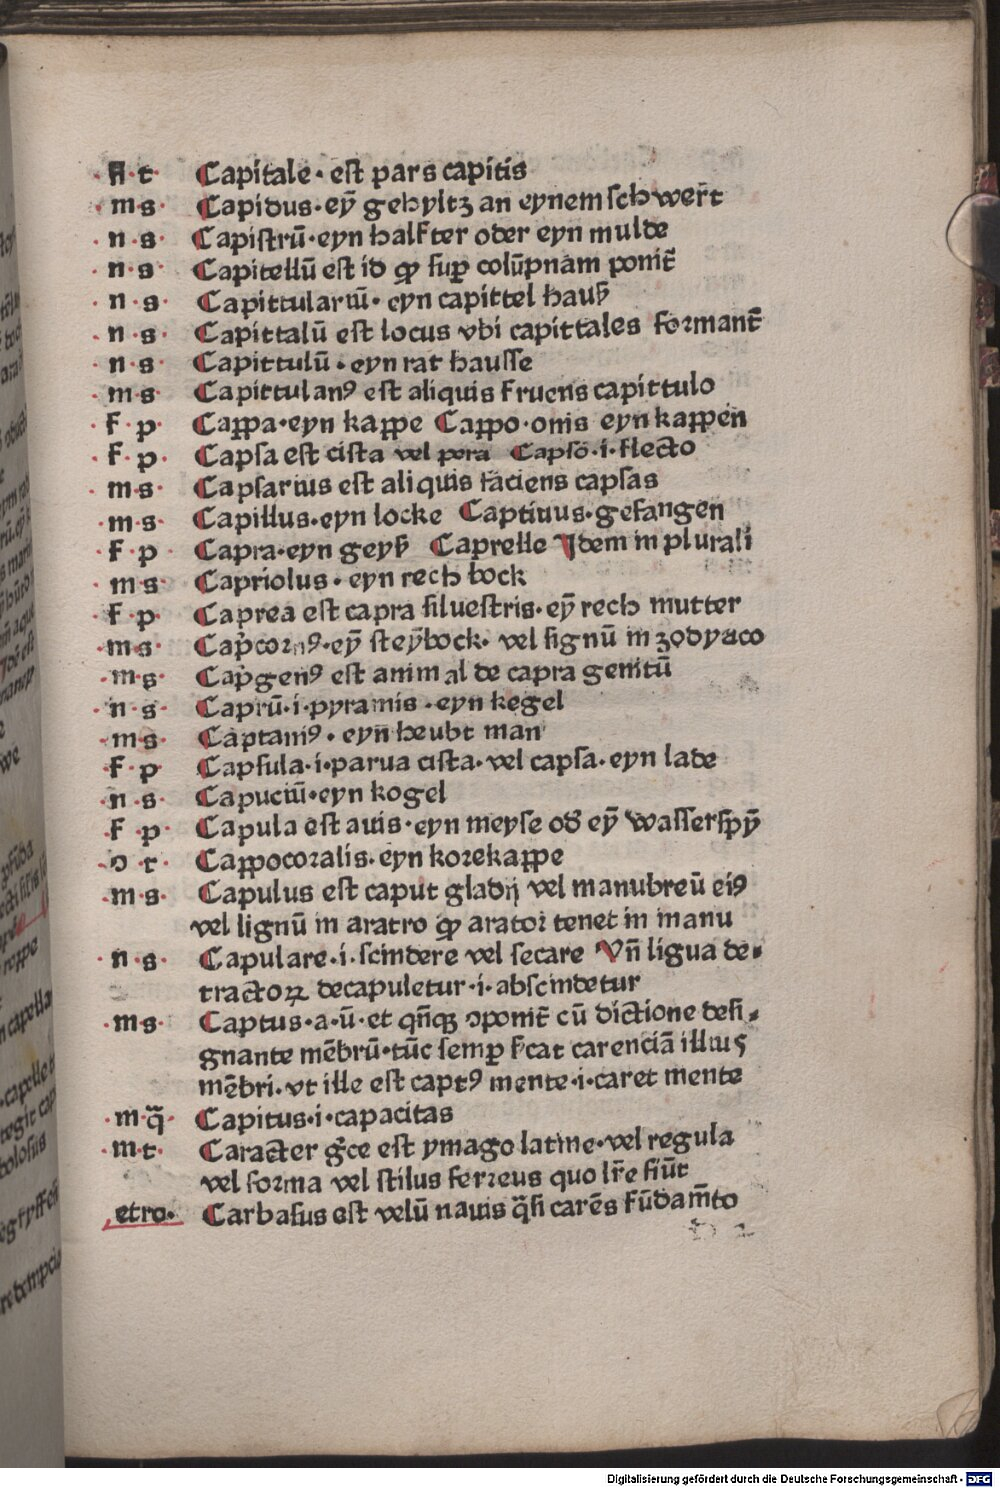 n · t · Capitale · est pars capitis
· m · s · Capidus · eỹ gehyltz an eynem schwert̄
· n · s · Capistrū · eyn halfter oder eyn mulde
· n · s · Capitellū est id ꝙ suꝑ colūpnam ponit̄
· n · s · Capittulariū · eyn capittel hauß
· n · s · Capittalū est locus vbi capittales formant̄
· n · s · Capittulū · eyn rat hausse
· m · s · Capittulanꝰ est aliquis fruens capittulo
· f · p · Cappa · eyn kappe Cappo · onis eyn kappen
· f · p · Capsa est cista vel pera Capso · i · flecto
· m · s · Capsarius est aliquis faciens capsas
· m · s · Capillus · eyn locke Captiuus · gefangen
· f · p · Capra · eyn geyß Caprelle Idem in plurali
m · s · Capriolus · eyn rech bock
· f · p · Caprea est capra siluestris · eỹ rech mutter
· m · s · Cap̄cornꝰ · eỹ steỹbock · vel signū in zodyaco
· m · s · Cap̄genꝰ est animal de capra genitū
· n · s · Caprū · i · pyramis · eyn kegel
· m · s · Captaniꝰ · eyn heubt man
· f · p · Capsula · i · parua cista · vel capsa · eyn lade
· n · s · Capuciū · eyn kogel
· f · p · Capula est auis · eyn meyse od̄ eỹ wasserspỹ
· ɔ · t · Cappocoralis · eyn korekappe
· m · s · Capulus est caput gladij vel manubreū eiꝰ
vel lignū in aratro ꝙ arator tenet in manu
· n · s · Capulare · i · scindere vel secare Vn̄ ligua de⸗
tractoꝝ decapuletur · i · abscindetur
· m · s · Captus · a · ū · et qn̄qꝫ ꝯponit̄ cū dictione desi⸗
gnante mēbrū · tūc semꝑ s̄cat carenciā illius
mēbri · vt ille est captꝰ mente · i · caret mente
· m · q̄ · Capitus · i · capacitas
· m · t · Caracter gr̄ce est ymago latine · vel regula
vel forma vel stilus ferreus quo lr̄e fiūt
etro · Carbasus est velū nauis q̄si carēs fūdam̄to
Digitalisierung gefördert durch die Deutsche Forschungsgemeinschaft · DFG